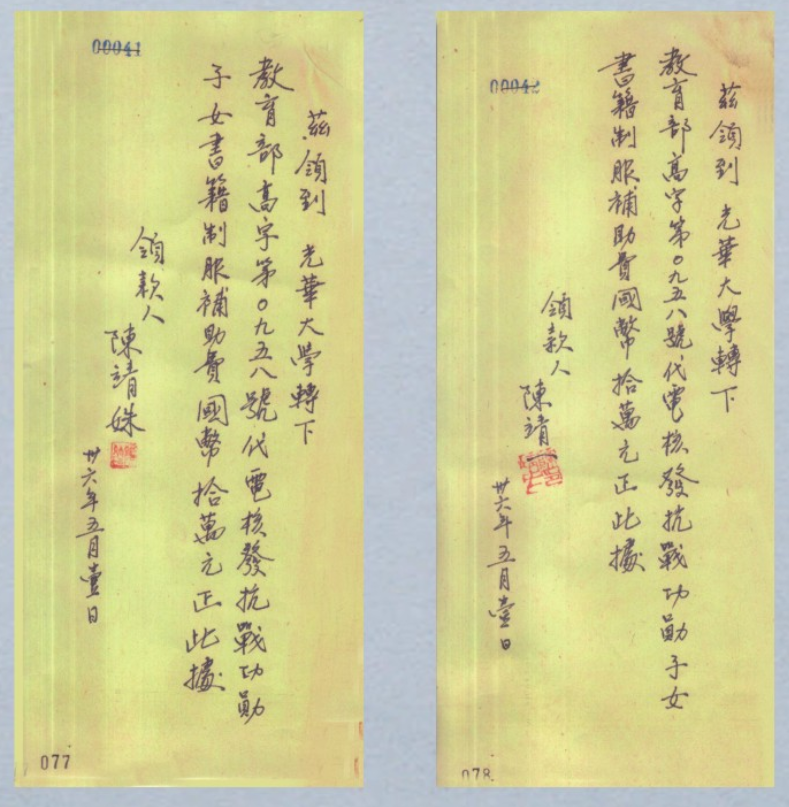 00041
茲領到 光華大學轉下
教育部高字第0九五八號代電核發抗戰功勛
子女書籍制服補助費國幣拾萬元正此據
領款人
陳靖姝
卅六年五月壹日
077
00042
茲領到 光華大學轉下
教育部高字第0九五八號代電核發抗戰功勛子女
書籍制服補助費國幣拾萬元正此據
領款人
陳靖一
卅六年五月壹日
078